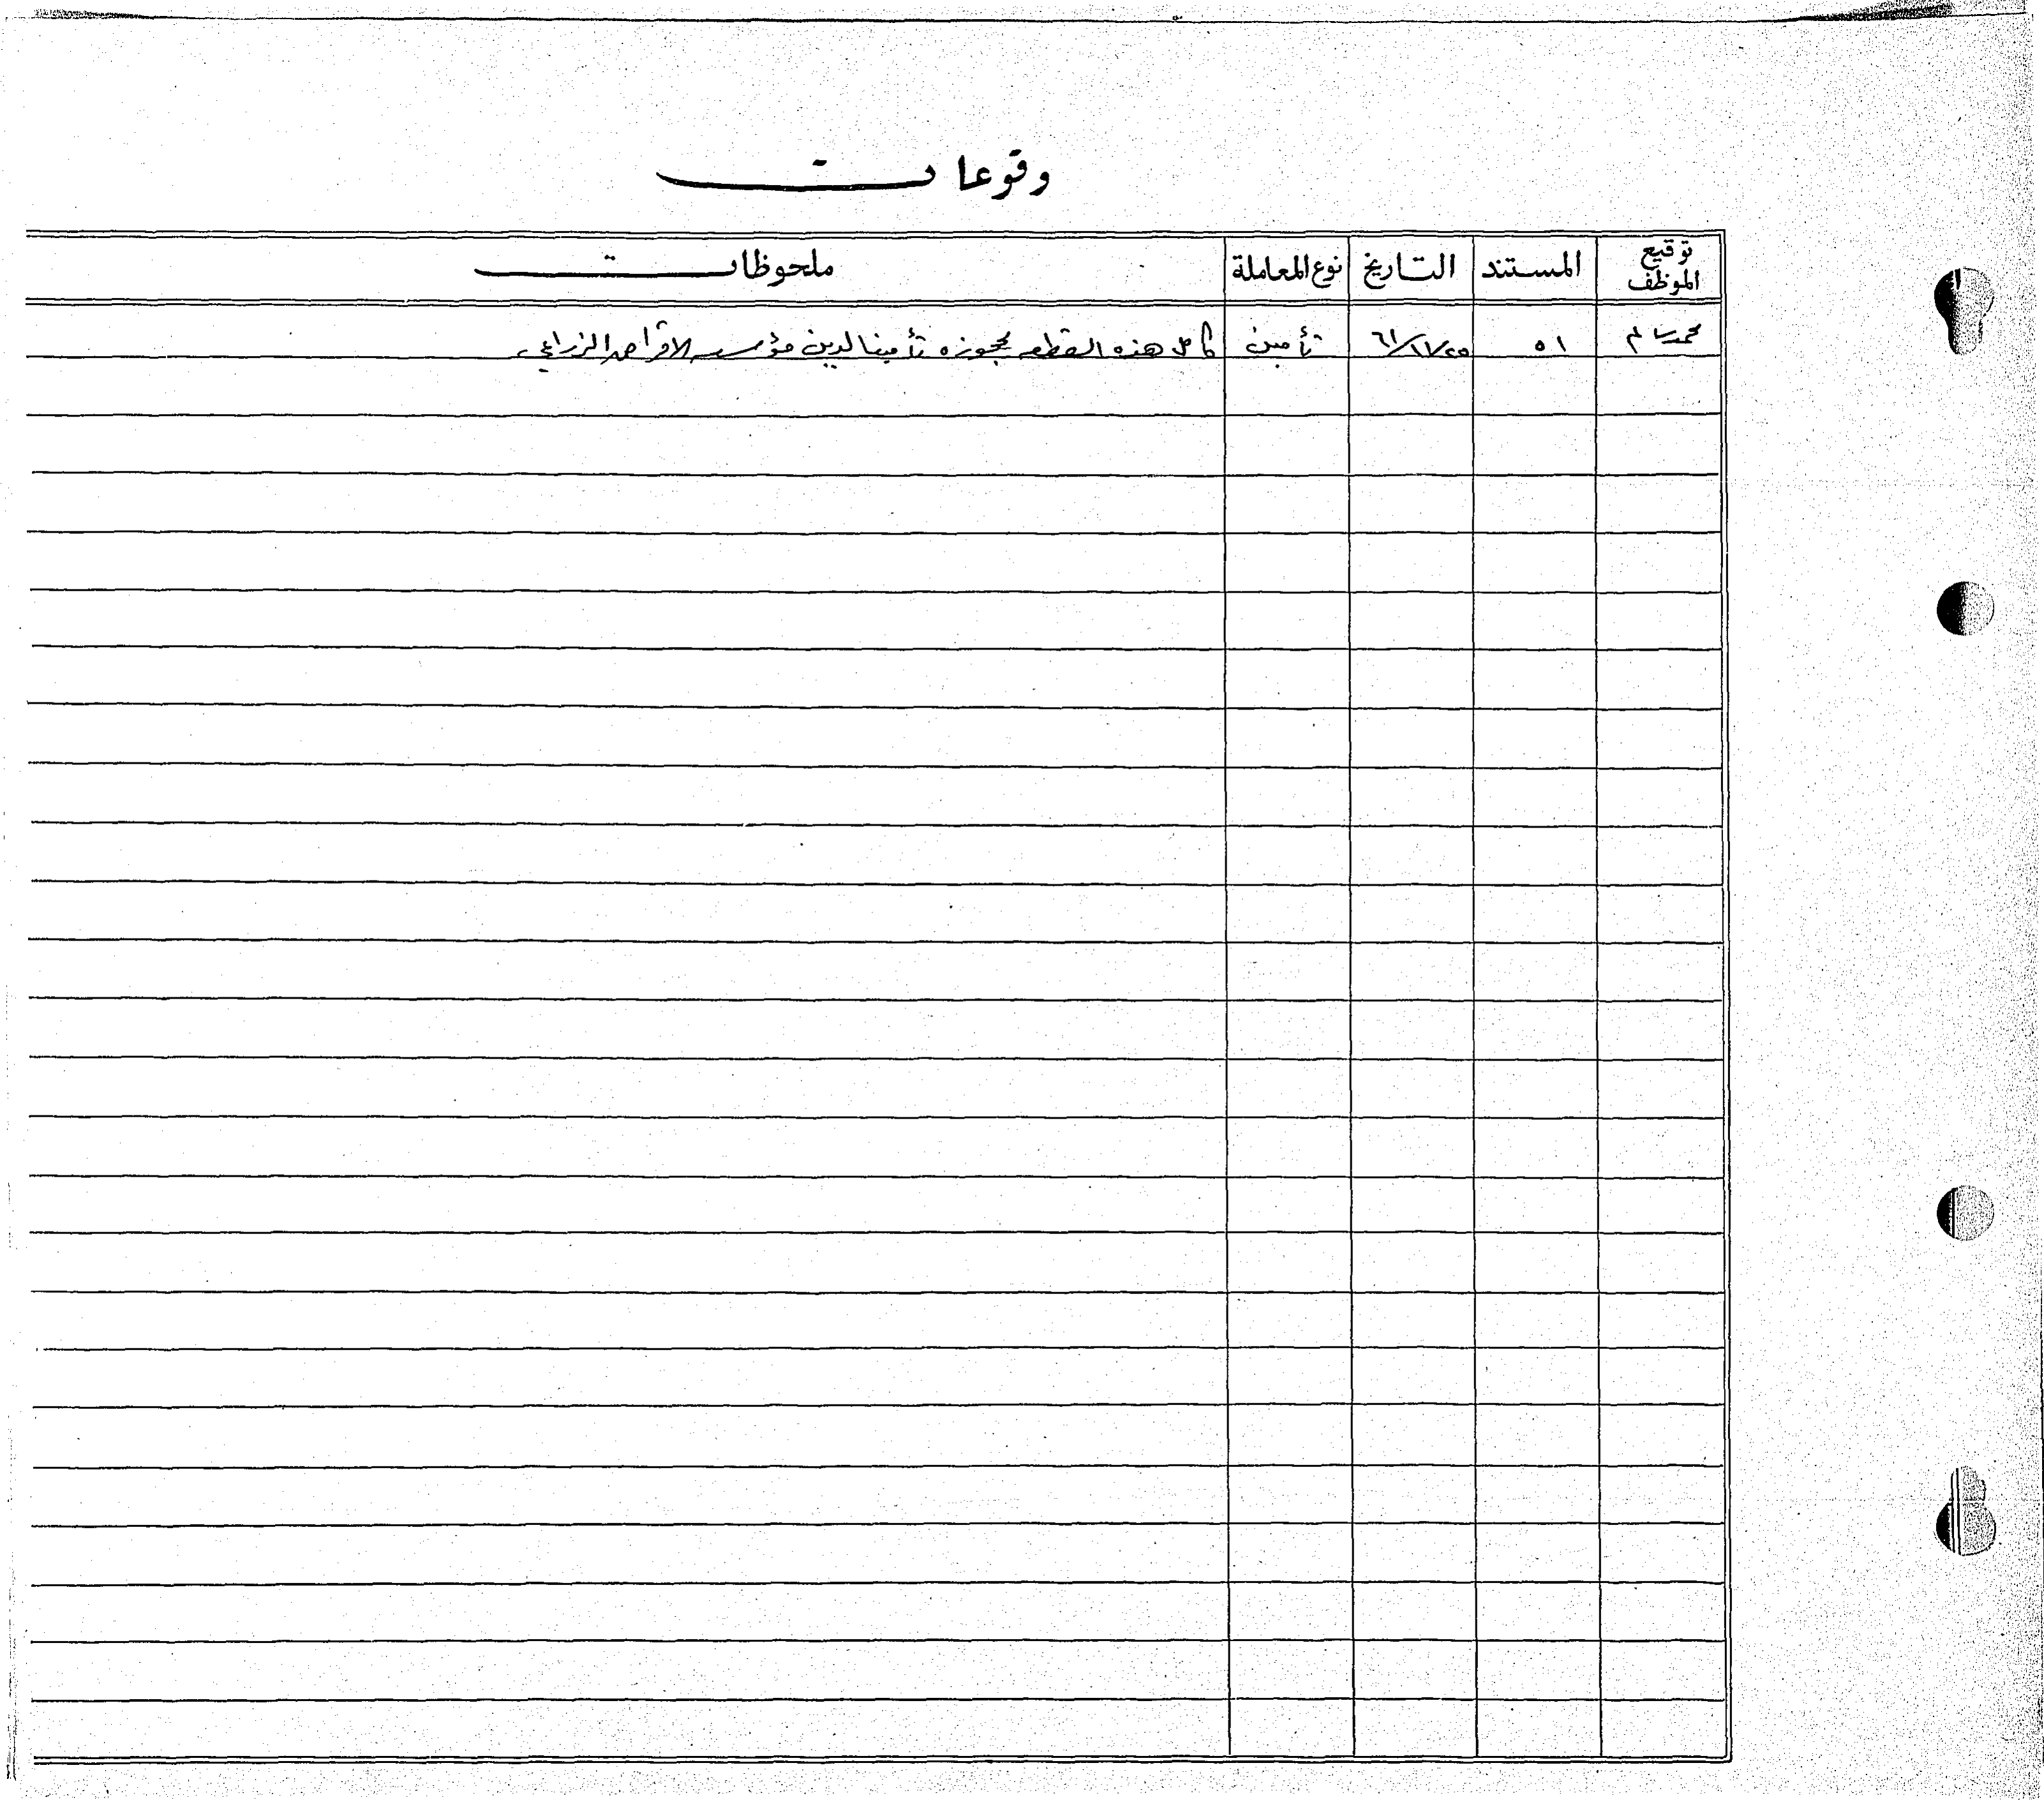 وقوعات
توقيع الموظف المستند التاريخ نوع المعاملة ملحوظات
محمد سالم ٥١ ٦١/١١/٢٥ تأمين كامل هذه القطعه محجوزه تأمينا لدين مؤسسه الاقراض الزراعي